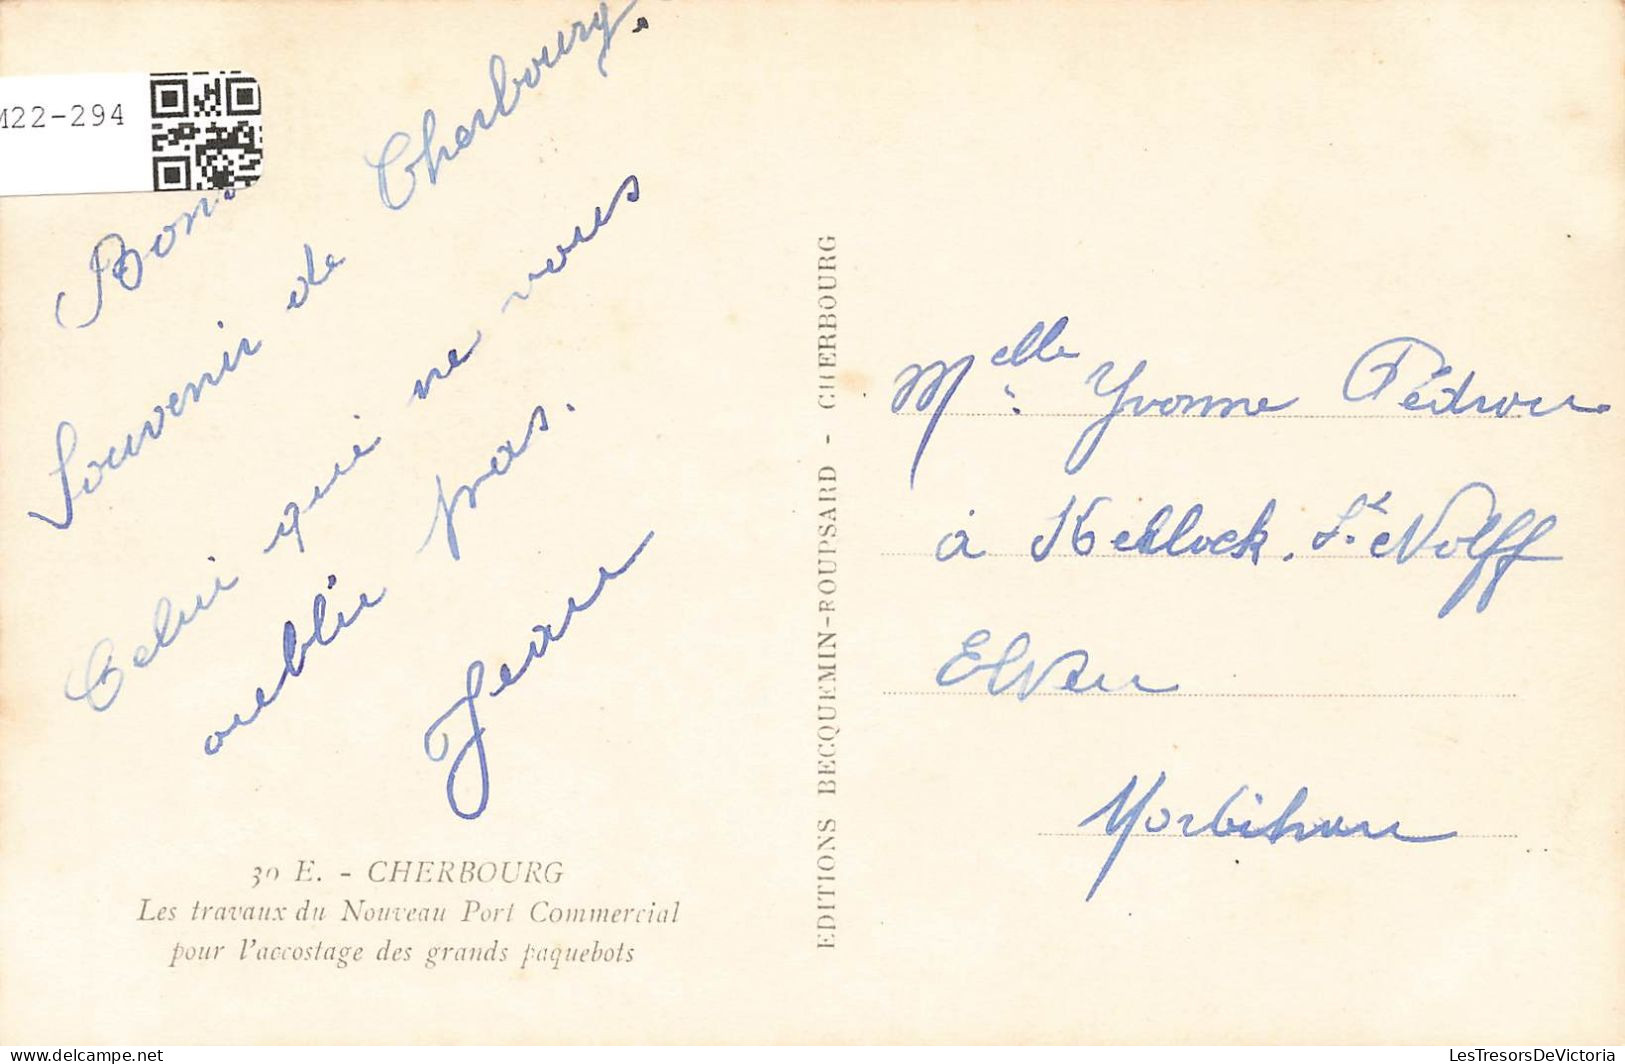 M22-294
Bon
Souvenir de Cherbourg.
Celui qui ne vous
oublie pas.
Jean
30 E. - CHERBOURG
Les travaux du Nouveau Port Commercial
pour l'accostage des grands paquebots
EDITIONS BECQUEMIN-ROUPSARD - CHERBOURG
Melle Yvonne
à St Nolff
Elven
Morbihan
LesTresorsDeVictoria